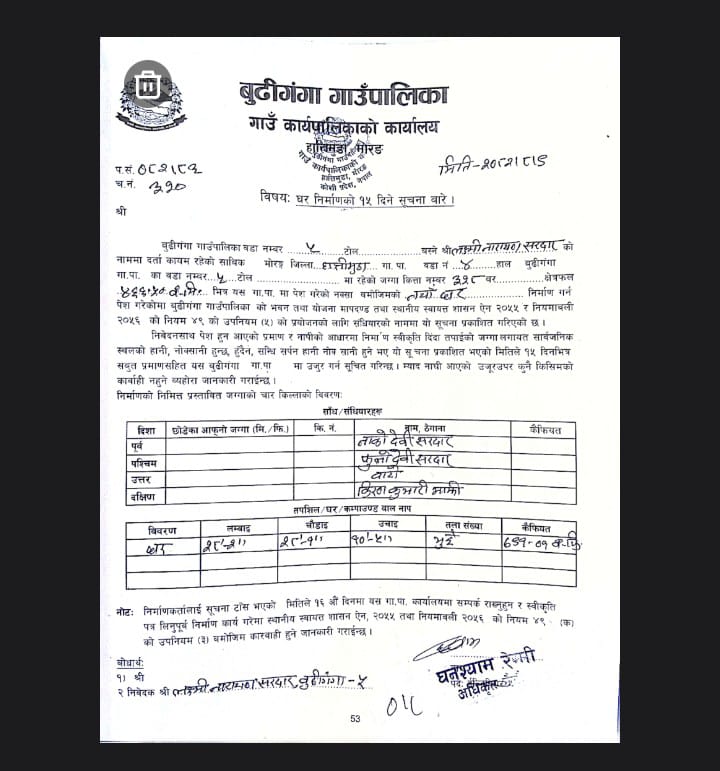 बुढीगंगा गाउँपालिका
गाउँ कार्यपालिकाको कार्यालय
हात्तिमुढा, मोरङ
प.सं. ०८२।८३
मिति-२०८२।८।५
च.नं. ३२०
विषय: घर निर्माणको १५ दिने सूचना बारे ।
श्री
बुढीगंगा गाउँपालिका वडा नम्बर ५ टोल बस्ने श्री लक्ष्मी नारायण सरदार को
नाममा दर्ता कायम रहेको साविक मोरङ्ग जिल्ला हात्तीमुढा गा. पा. वडा नं ४ हाल बुढीगंगा
गा.पा. का वडा नम्बर ५ टोल मा रहेको जग्गा कित्ता नम्बर ३२९ घर क्षेत्रफल
४६६.५० व.मि. भित्र यस गा.पा. मा पेश गरेको नक्सा बमोजिमको नयाँ घर निर्माण गर्न
पेश गरेकोमा बुढीगंगा गाउँपालिका को भवन तथा योजना मापदण्ड तथा स्थानीय स्वायत्त शासन ऐन २०५५ र नियमावली
२०५६ को नियम ४९ को उपनियम (५) को प्रयोजनको लागि संधियारको नाममा यो सूचना प्रकाशित गरिएको छ ।
निबेदनसाथ पेश हुन आएको प्रमाण र नापीको आधारमा निर्माण स्वीकृति दिंदा तपाईको जग्गा लगायत सार्वजनिक
स्थलको हानी, नोक्सानी हुन्छ, हुँदैन, सन्धि सर्पन हानी नोष्सानी हुने भए यो सूचना प्रकाशित भएको मितिले १५ दिनभित्र
सबुत प्रमाणसहित यस बुढीगंगा गा.पा मा उजुर गर्न सूचित गरिन्छ । म्याद नाघी आएको उजूरउपर कुनै किसिमको
कार्वाही नहुने व्यहोरा जानकारी गराईन्छ ।
निर्माणको निमित्त प्रस्तावित जग्गाको चार किल्लाको विवरण:
साँध/संधियारहरू
दिशा छोडेका आफूनो जग्गा (मि./फि.) कि. नं. नाम, ठेगाना कैफियत
पूर्व देवी सरदार
पश्चिम फुलो देवी सरदार
उत्तर बाटो
दक्षिण किरण कुमारी माझी
तपशिल/घर/कम्पाउण्ड वाल नाप
विवरण लम्बाइ चौडाइ उचाइ तला संख्या कैफियत
घर २८'-२" २८'-१" १०'-५" भुई
नोट: निर्माणकर्तालाई सूचना टाँस भएको मितिले १६ औं दिनमा यस गा.पा. कार्यालयमा सम्पर्क राख्नुहुन र स्वीकृति
पत्र लिनुपूर्व निर्माण कार्य गरेमा स्थानीय स्वायत्त शासन ऐन, २०५५ तथा नियमावली २०५६ को नियम ४९ (क)
को उपनियम (३) बमोजिम कारवाही हुने जानकारी गराईन्छ ।
बोधार्थ:
१) श्री
२ निवेदक श्री लक्ष्मी नारायण सरदार, बुढीगंगा - ५
घनश्याम रेग्मी
अधिकृत
53